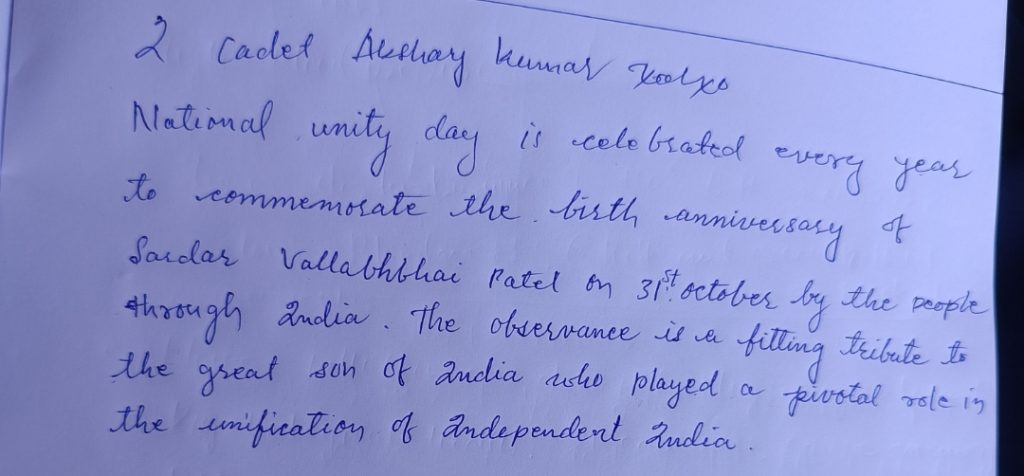 2 Cadet Akshay Kumar
National unity day is celebrated every year
to commemorate the birth anniversary of
Sardar Vallabhbhai Patel on 31st october by the people
through India. The observance is a fitting tribute to
the great son of India who played a pivotal role in
the unification of Independent India.